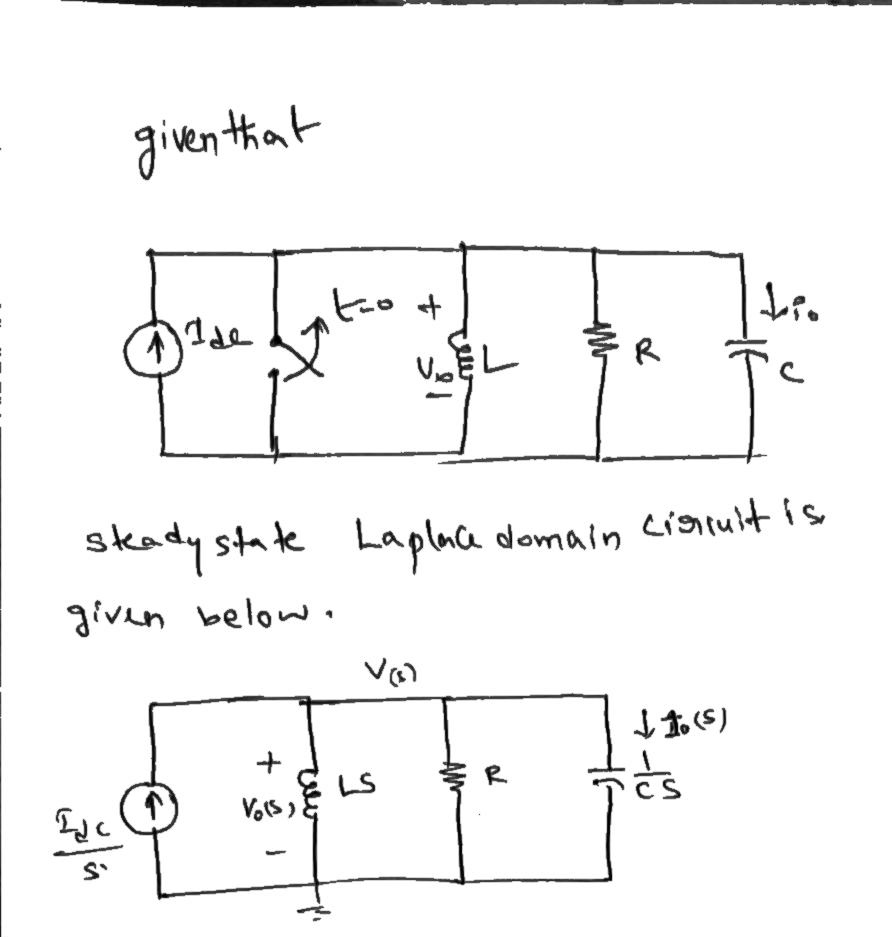 given that
Idc
t=0
+
Vo
-
L
R
↓ io
C
steady state Laplace domain circuit is
given below.
V(s)
Idc/s
+
Vo(s)
-
LS
R
↓ Io(s)
1/CS